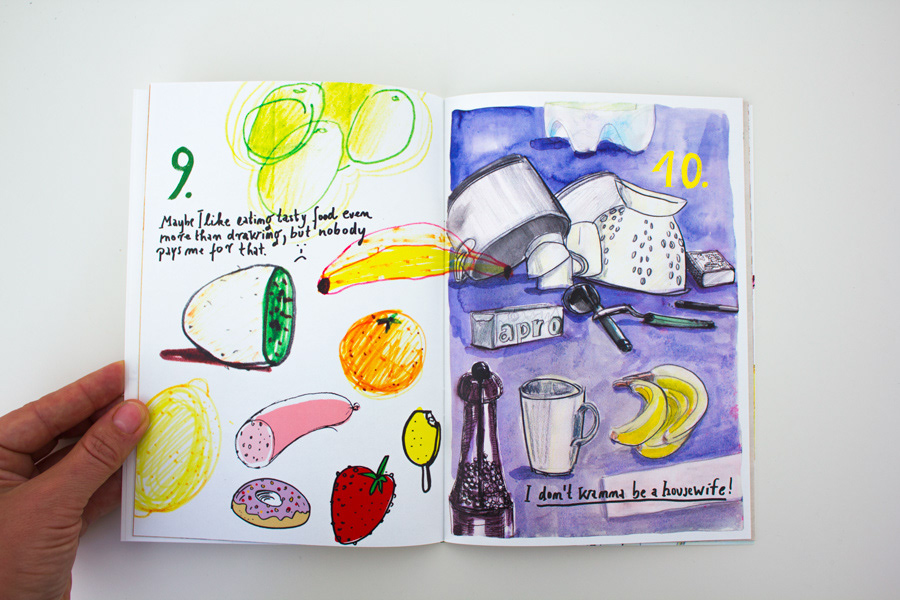 9.
Maybe I like eating tasty food even
more than drawing, but nobody
pays me for that.
10.
apro
I don't wanna be a housewife!